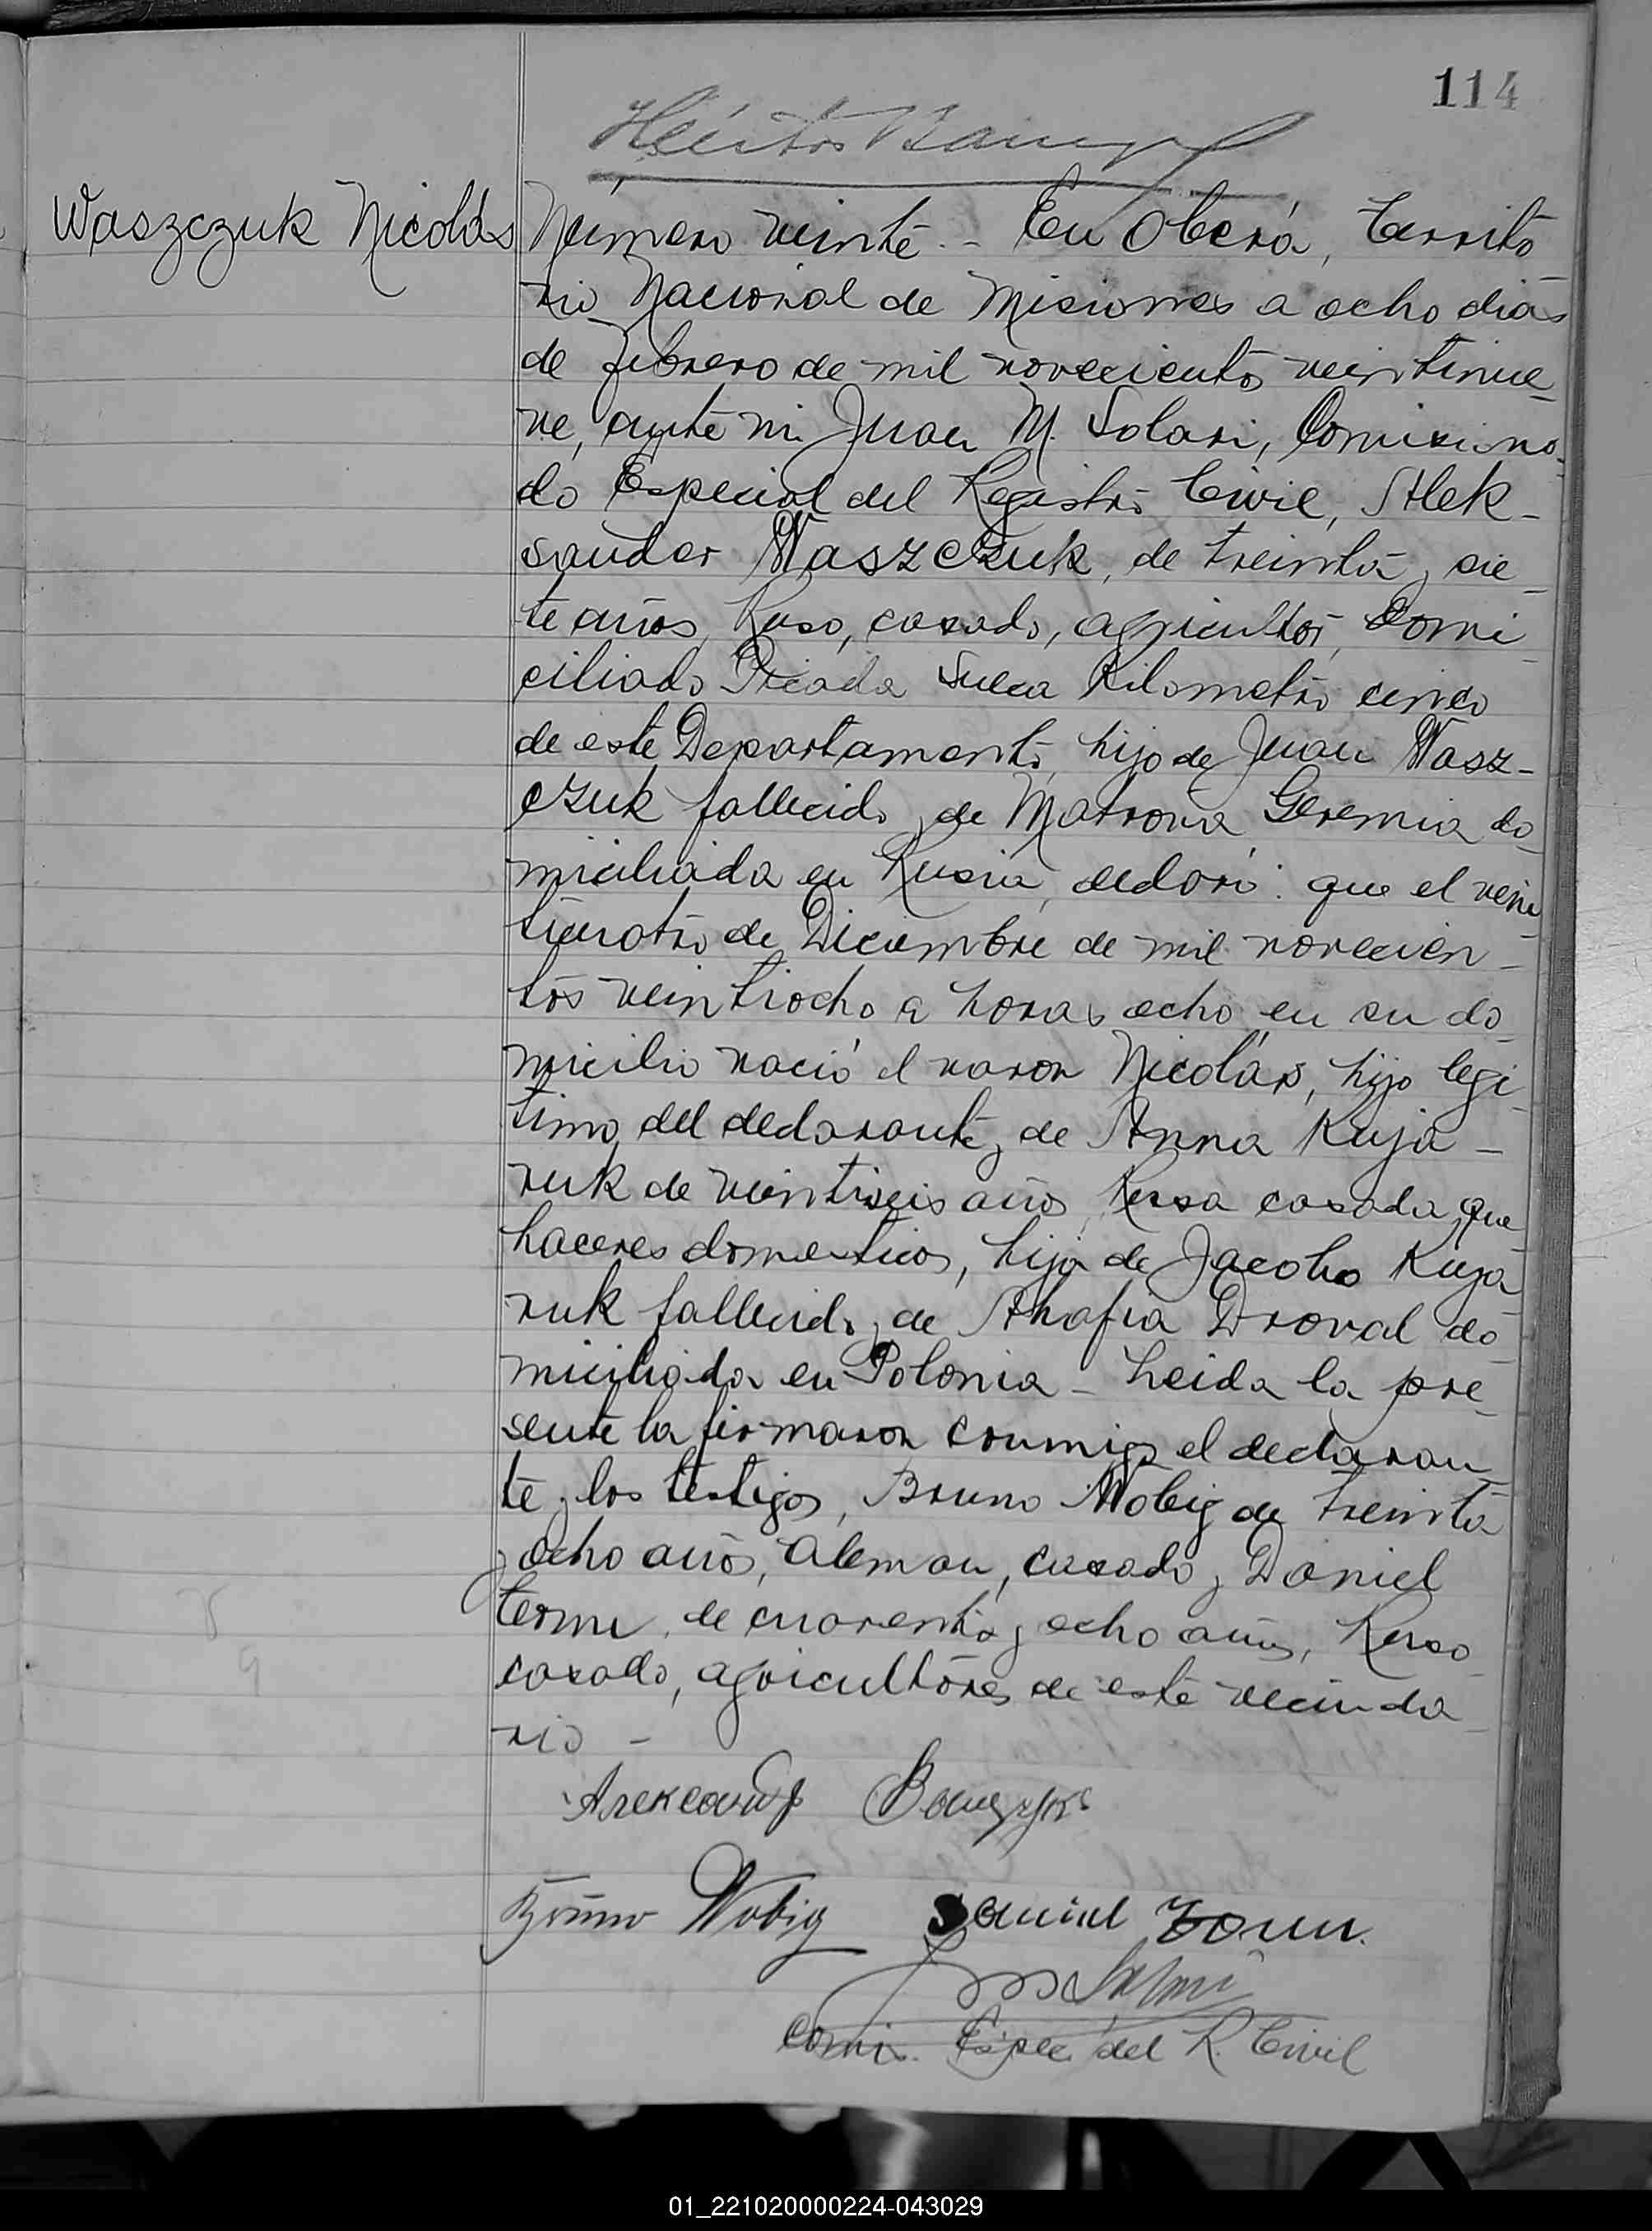 114
Waszczuk Nicolás
Número veinte.- En Oberá, territo
rio Nacional de Misiones a ocho dias
de febrero de mil novecientos veintinue
ve, ante mi Juan M. Solari, Comisiona
do Especial del Registro Civil, Alek-
sander Waszczuk, de treinta y sie
te años, Ruso, casado, agricultor, domi
ciliado Picada Sueca Kilometro cinco
de este Departamento, hijo de Juan Wasz-
czuk fallecido y de Matrona Geremia do
miciliada en Rusia, declaró: que el vein
ticuatro de Diciembre de mil novecien-
tos veintiocho a horas ocho en su do
micilio nació el varon Nicolás, hijo legi
timo del declarante y de Anna Kuja-
ruk de veintiseis años, Rusa casada, que
haceres domesticos, hija de Jacobo Kuja
ruk fallecido y de Ahafia Droval do
miciliada en Polonia - Leida la pre
sente la firmaron conmigo el declaran
te y los testigos, Bruno Wobig de treinta
y ocho años, aleman, casado y Daniel
term, de cuarenta y ocho años, Ruso
casado, agricultores de este vecinda
rio -
Александр Ващук
Bruno Wobig Daniel
Comis. Espec. del R. Civil
01_221020000224-043029